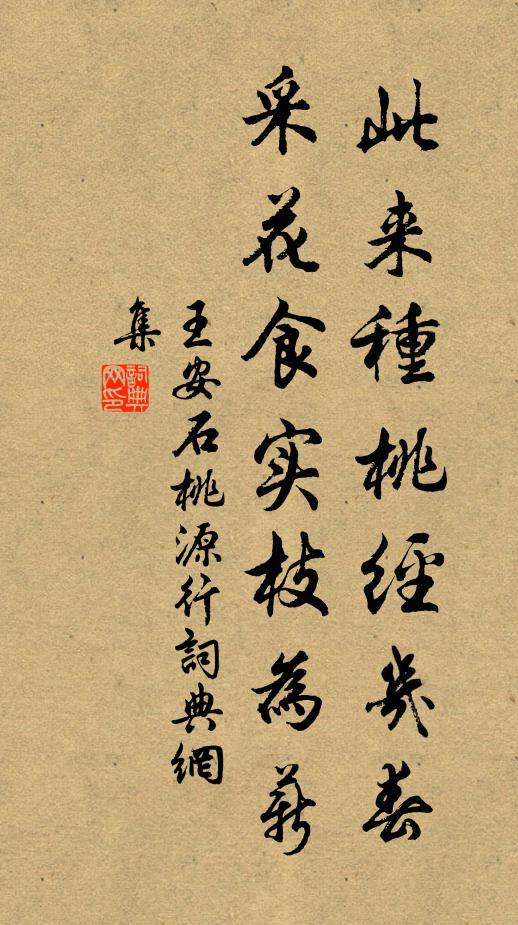 此来種桃經幾春
采花食实枝為薪
王安石桃源行詞典網
集
詞典網印